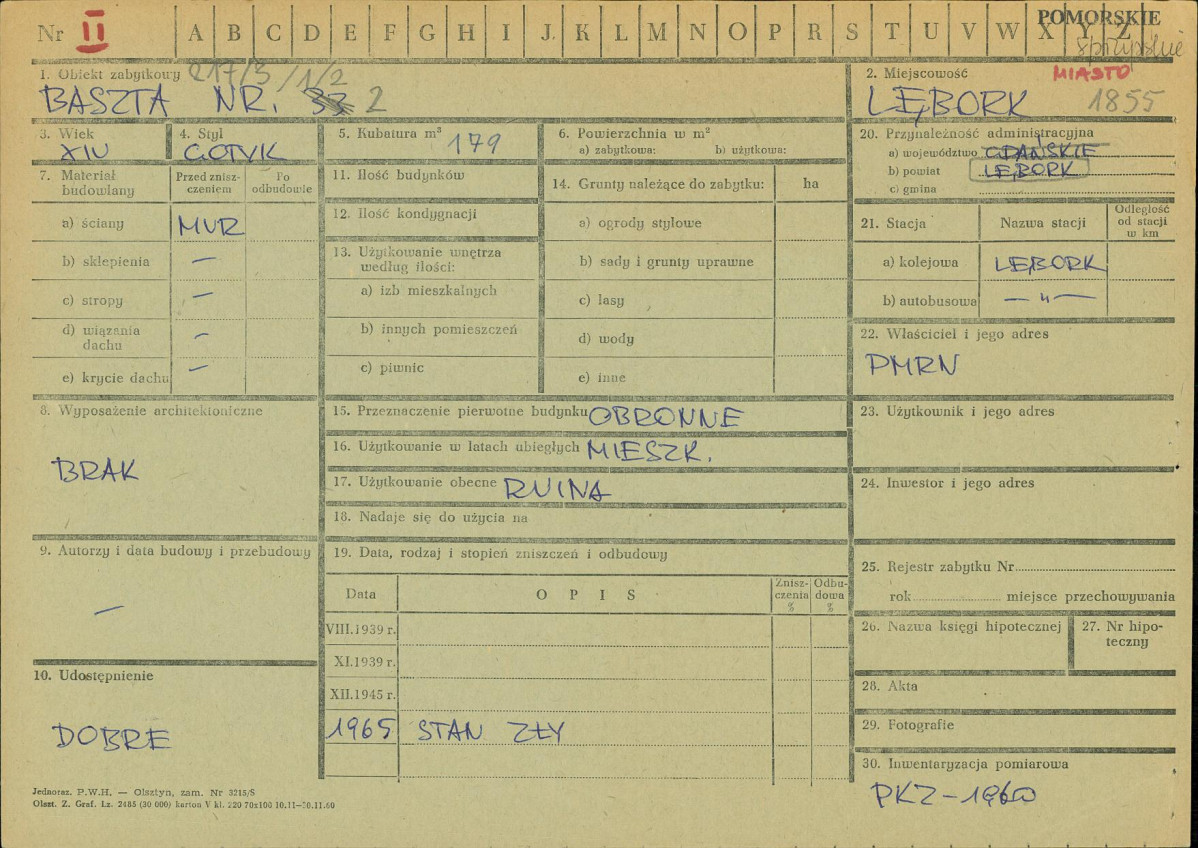 Nr II A B C D E F G H I J K L M N O P R S T U V W X Y Z POMORSKIE
217/3/1/2
1. Obiekt zabytkowy
BASZTA NR. 2
2. Miejscowość MIASTO
LĘBORK 1855
3. Wiek
XIV
4. Styl
GOTYK
5. Kubatura m³ 179
6. Powierzchnia w m²
a) zabytkowa: b) użytkowa:
7. Materiał budowlany
Przed znisz-
czeniem
Po
odbudowie
a) ściany MUR
b) sklepienia —
c) stropy —
d) wiązania
dachu —
e) krycie dachu —
8. Wyposażenie architektoniczne
BRAK
9. Autorzy i data budowy i przebudowy
—
10. Udostępnienie
DOBRE
11. Ilość budynków
12. Ilość kondygnacji
13. Użytkowanie wnętrza
według ilości:
a) izb mieszkalnych
b) innych pomieszczeń
c) piwnic
14. Grunty należące do zabytku: ha
a) ogrody stylowe
b) sady i grunty uprawne
c) lasy
d) wody
e) inne
15. Przeznaczenie pierwotne budynku OBRONNE
16. Użytkowanie w latach ubiegłych MIESZK.
17. Użytkowanie obecne RUINA
18. Nadaje się do użycia na
19. Data, rodzaj i stopień zniszczeń i odbudowy
Data OPIS
Znisz-
czenia
%
Odbu-
dowa
%
VIII.1939 r.
XI.1939 r.
XII.1945 r.
1965 STAN ZŁY
20. Przynależność administracyjna
a) województwo GDAŃSKIE
b) powiat LĘBORK
c) gmina
21. Stacja Nazwa stacji
Odległość
od stacji
w km
a) kolejowa LĘBORK
b) autobusowa — „ —
22. Właściciel i jego adres
PMRN
23. Użytkownik i jego adres
24. Inwestor i jego adres
25. Rejestr zabytku Nr
rok miejsce przechowywania
26. Nazwa księgi hipotecznej
27. Nr hipo-
teczny
28. Akta
29. Fotografie
30. Inwentaryzacja pomiarowa
PKZ – 1960
Jednoraz. P.W.H. — Olsztyn, zam. Nr 3215/S
Olszt. Z. Graf. Lz. 2485 (30 000) karton V kl. 220 70x100 10.11—30.11.60